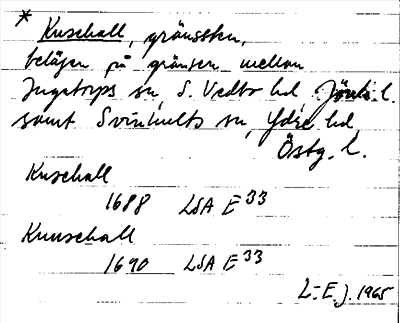 * Kuschall, gränssten,
belägen på gränsen mellan
Ingatorps sn, S. Vedbo hd, Jönk. l.
samt Svinhults sn, Ydre hd,
Östg. l.
Kuschall
1688 LSA E 33
Kunschall
1690 LSA E 33
L-E. J. 1965